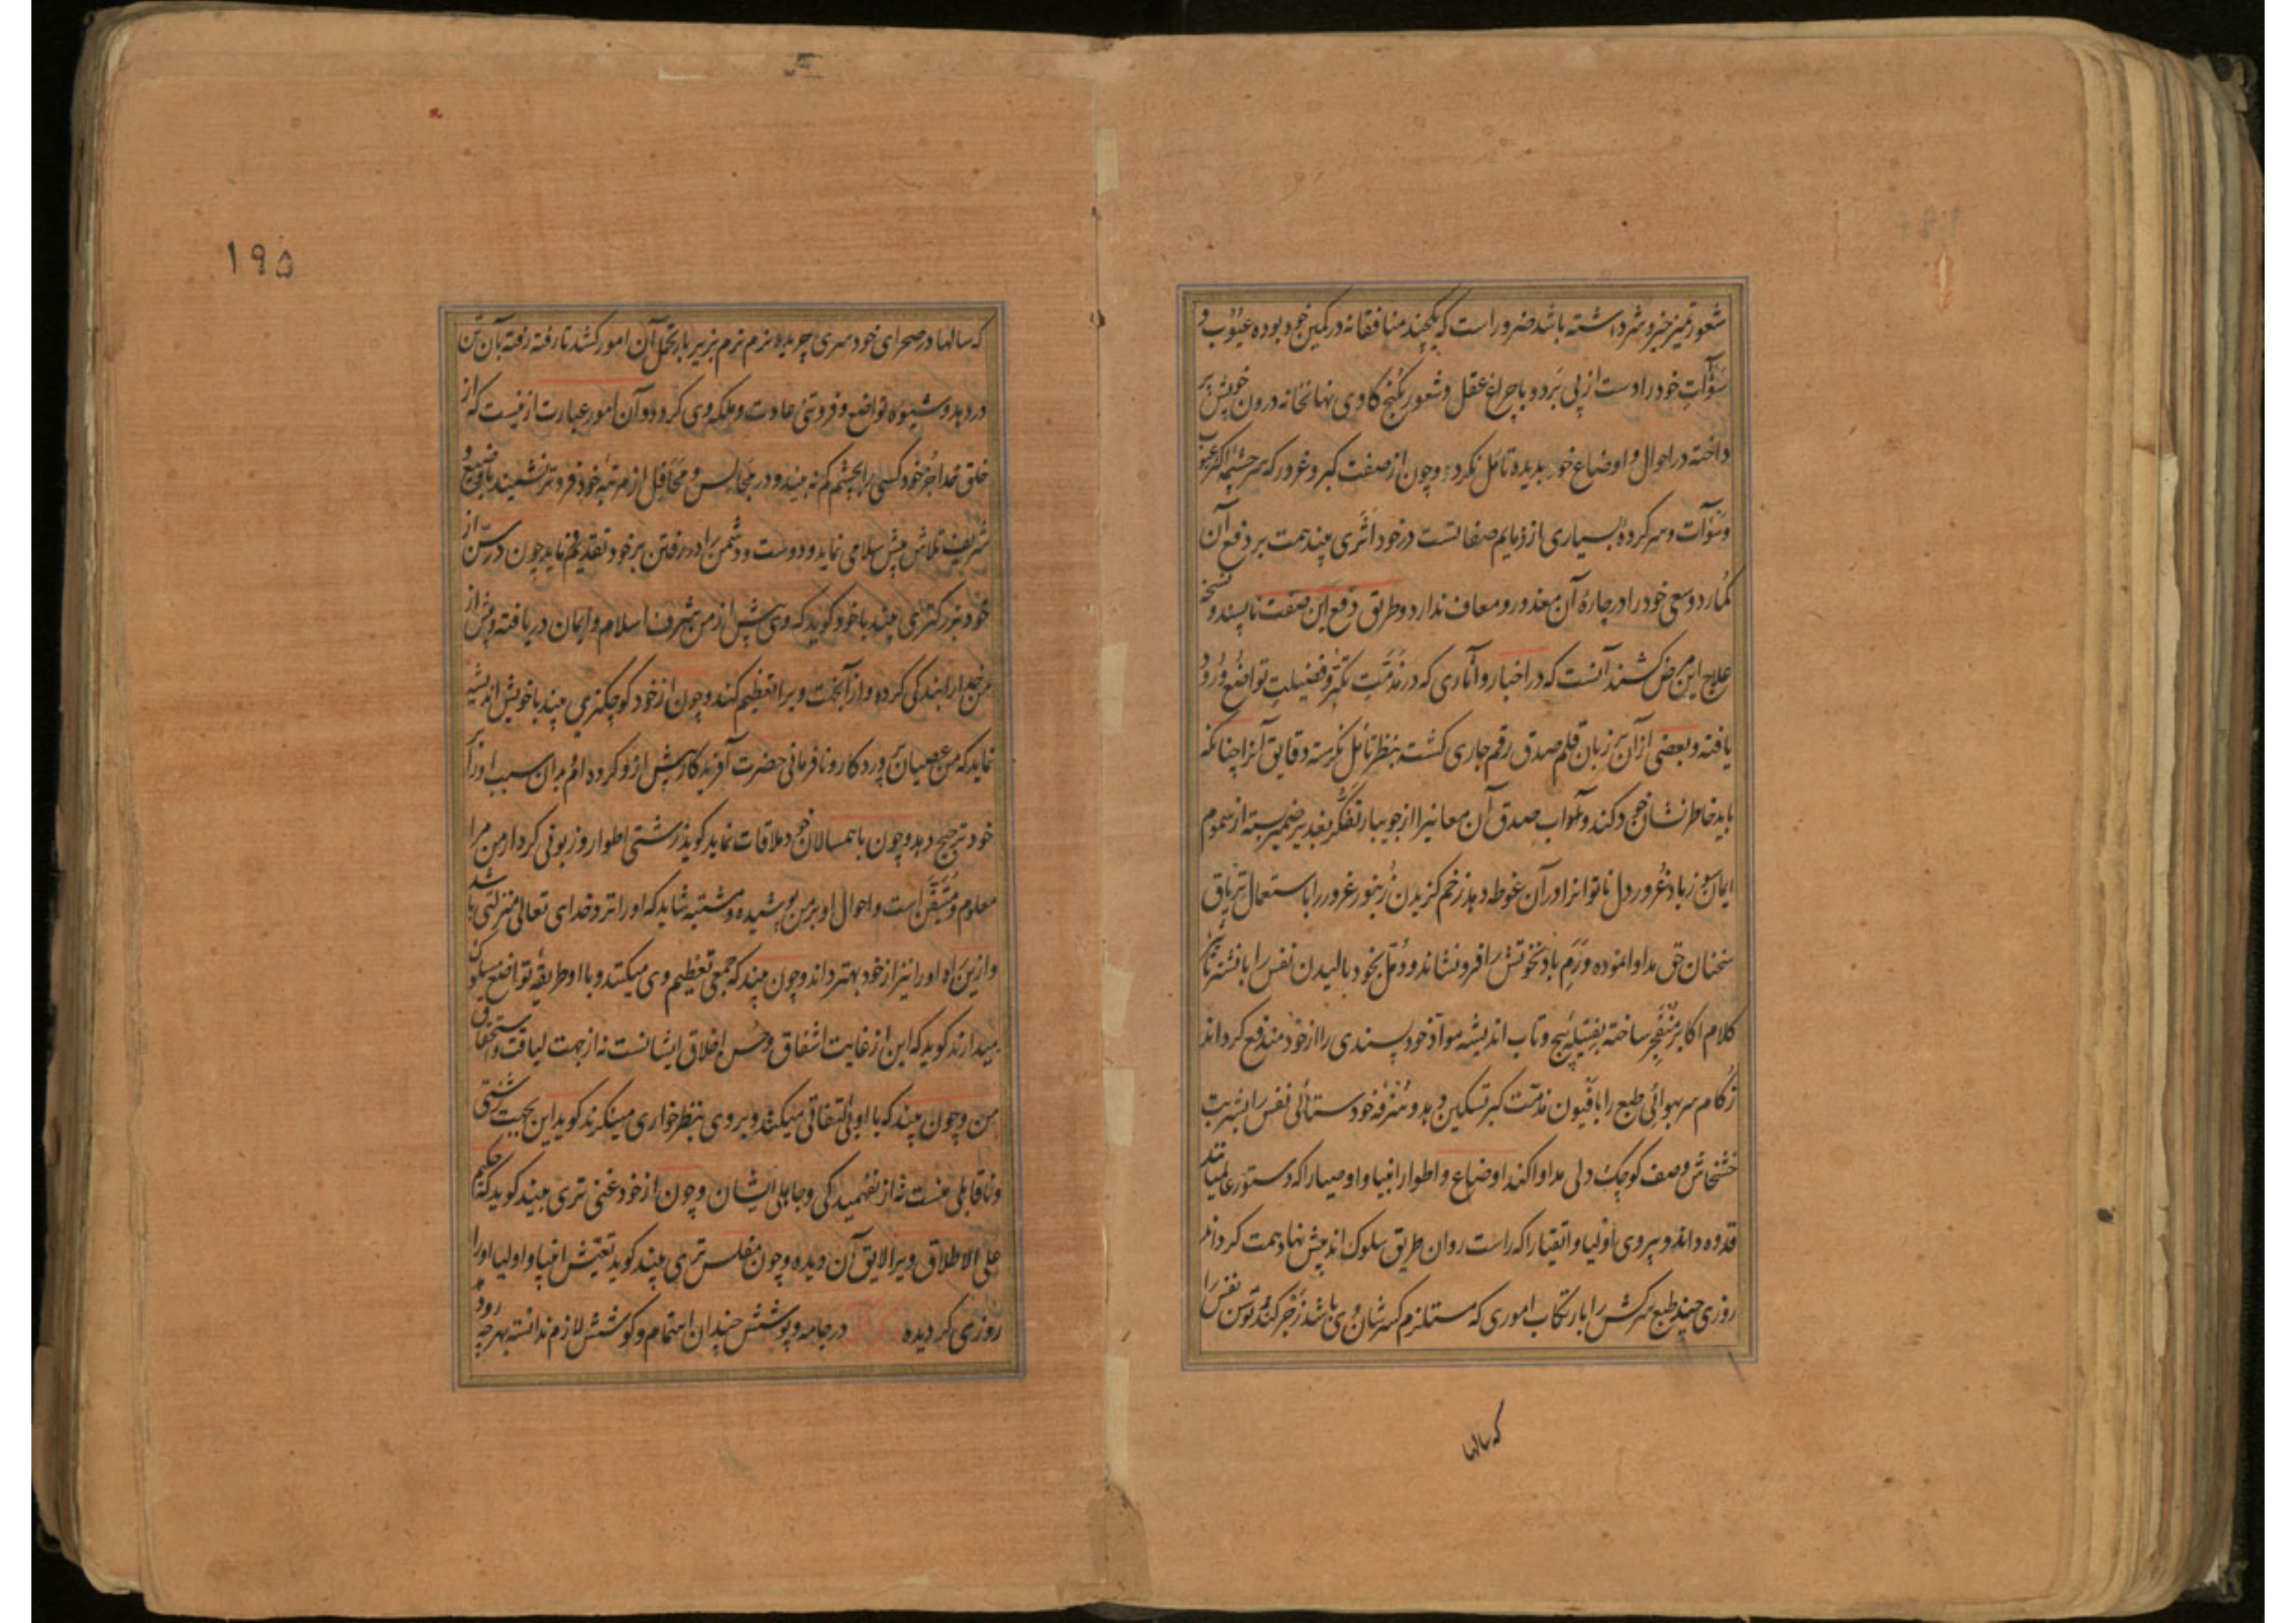 شعور تمیز خیر و شر داشته باشد ضرور است که یکچند منافقانه در کمین خود بوده عیوب و
سوآت خود را دست از پی برد و با چراغ عقل و شعور بکنج کاوی نهانخانه درون خویش پر
داخته در احوال و اوضاع خود بدیده تامل نگرد و چون از صفت کبر و غرور که سرچشمه اکثر عیوب
و سوآت و سر کرده بسیاری از ذمایم صفاتست در خود اثری بیند همت بر دفع آن
گمارد و سعی خود را در چاره آن معذور و معاف ندارد و طریق دفع این صفت ناپسند و نسخه
علاج این مرض کشنده آنست که در اخبار و آثاری که در مذمت تکبر و فضیلت تواضع ورود
یافته و بعضی از آن بر زبان قلم صدق رقم جاری گشت بنظر تامل نگرسته دقایق آنرا چنانکه
باید خاطرنشان خود کند و بآب صدق آن معانیرا از جویبار تفکر بغدیر ضمیر بسته از سموم
ایمان سوز باد غرور دل ناتوانرا در آن غوطه دهد زخم گزیدن زنبور غرور را باستعمال تریاق
سخنان حق مداوا نموده ورم باد نخوتش را فرو نشاند و دمل بخود بالیدن نفس را بنشتر تأثیر
کلام اکابر منفجر ساخته بفتیله پیچ و تاب اندیشه مواد خود پسندی را از خود مندفع گرداند
زکام سر بهوائی طبع را بافیون مذمت کبر تسکین دهد و سرفه خود ستائی نفس را بشربت
خشخاش وصف کوچک دلی مداوا کند اوضاع و اطوار انبیا و اوصیا را که دستور عالمیانند
قدوه داند و پیروی اولیا و اتقیا را که راست روان طریق سلوک اند پیش نهاد همت گرداند
روزی چند طبع سرکش را بارتکاب اموری که مستلزم کسر شان وی باشد زجر کند و توسن نفس را
که سالها
۱۹۵
که سالها در صحرای خود سری چریده نرم نرم بزیر بار تحمل آن امور کشد تا رفته رفته بآن تن
در دهد و شیوه تواضع و فروتنی عادت و ملکه وی گردد و آن امور عبارت ازینست که از
خلق خدا جز خود کسی را بچشم کم نه بیند و در مجالس و محافل از مرتبه خود فروتر نشیند با وضیع و
شریف تلاش پیش سلامی نماید و دوست و دشمن را در رفتن بر خود تقدیم فرماید چون در سن از
خود بزرگتری بیند با خود گوید که وی پیش از من بشرف اسلام و ایمان دریافته و پیش از
من خدا را بندگی کرده و از آنجهت ویرا تعظیم کند و چون از خود کوچکتری بیند با خویش اندیشه
نماید که من عصیان پروردگار و نافرمانی حضرت آفریدگار پیش ازو کرده ام بدان سبب او را بر
خود ترجیح دهد و چون با همسالان خود ملاقات نماید گوید زشتی اطوار و زبونی کردار من مرا
معلوم و متیقن است و احوال او بر من پوشیده و مشتبه شاید که او را نزد خدای تعالی منزلتی باشد
و ازین راه او را نیز از خود بهتر داند و چون بیند که جمعی تعظیم وی میکنند و با او طریقه تواضع سلوک
میدارند گوید که این از غایت اشفاق و حسن اخلاق ایشانست نه از جهت لیاقت و استحقاق
من و چون بیند که با او بی التفاتی میکنند و بر وی بنظر خواری مینگرند گوید این بجهت زشتی
و ناقابلی منست نه از نفهمیدگی و جاهلی ایشان و چون از خود غنی تری بیند گوید که حکیم
علی الاطلاق ویرا لایق آن دیده و چون مفلس تری بیند گوید تعیش انبیا و اولیا او را
روزی گردیده در جامه و پوشش چندان اهتمام و کوشش لازم ندانسته بهر چه رو